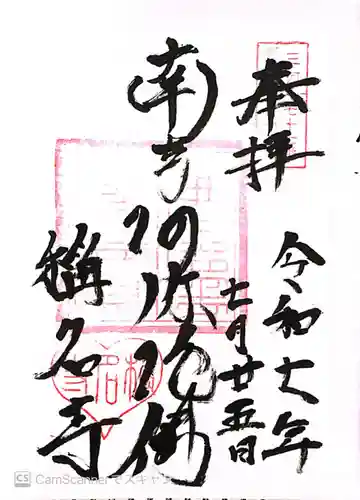 奉拝
令和七年
七月廿五日
南無阿弥陀佛
稱名寺
CS CamScannerでスキャ